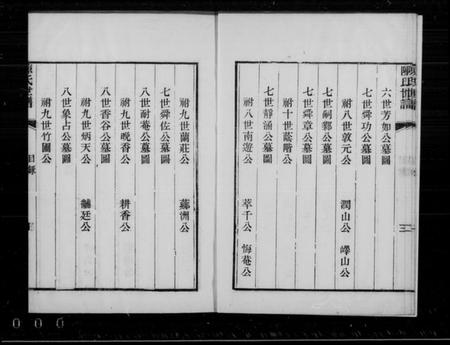 六世芳如公墓圖
七世舜功公墓圖
祔八世敦元公 潤山公 嶧山公
七世嗣鄴公墓圖
七世舜章公墓圖
祔十世蔭階公
七世靜涵公墓圖
祔八世南遊公 萃千公 悔菴公
祔九世蘭莊公 蘇洲公
七世舜佐公墓圖
八世耐菴公墓圖
祔九世晚香公 耕香公
八世香谷公墓圖
祔九世炳天公 黼廷公
八世象占公墓圖
祔九世竹圃公
目錄